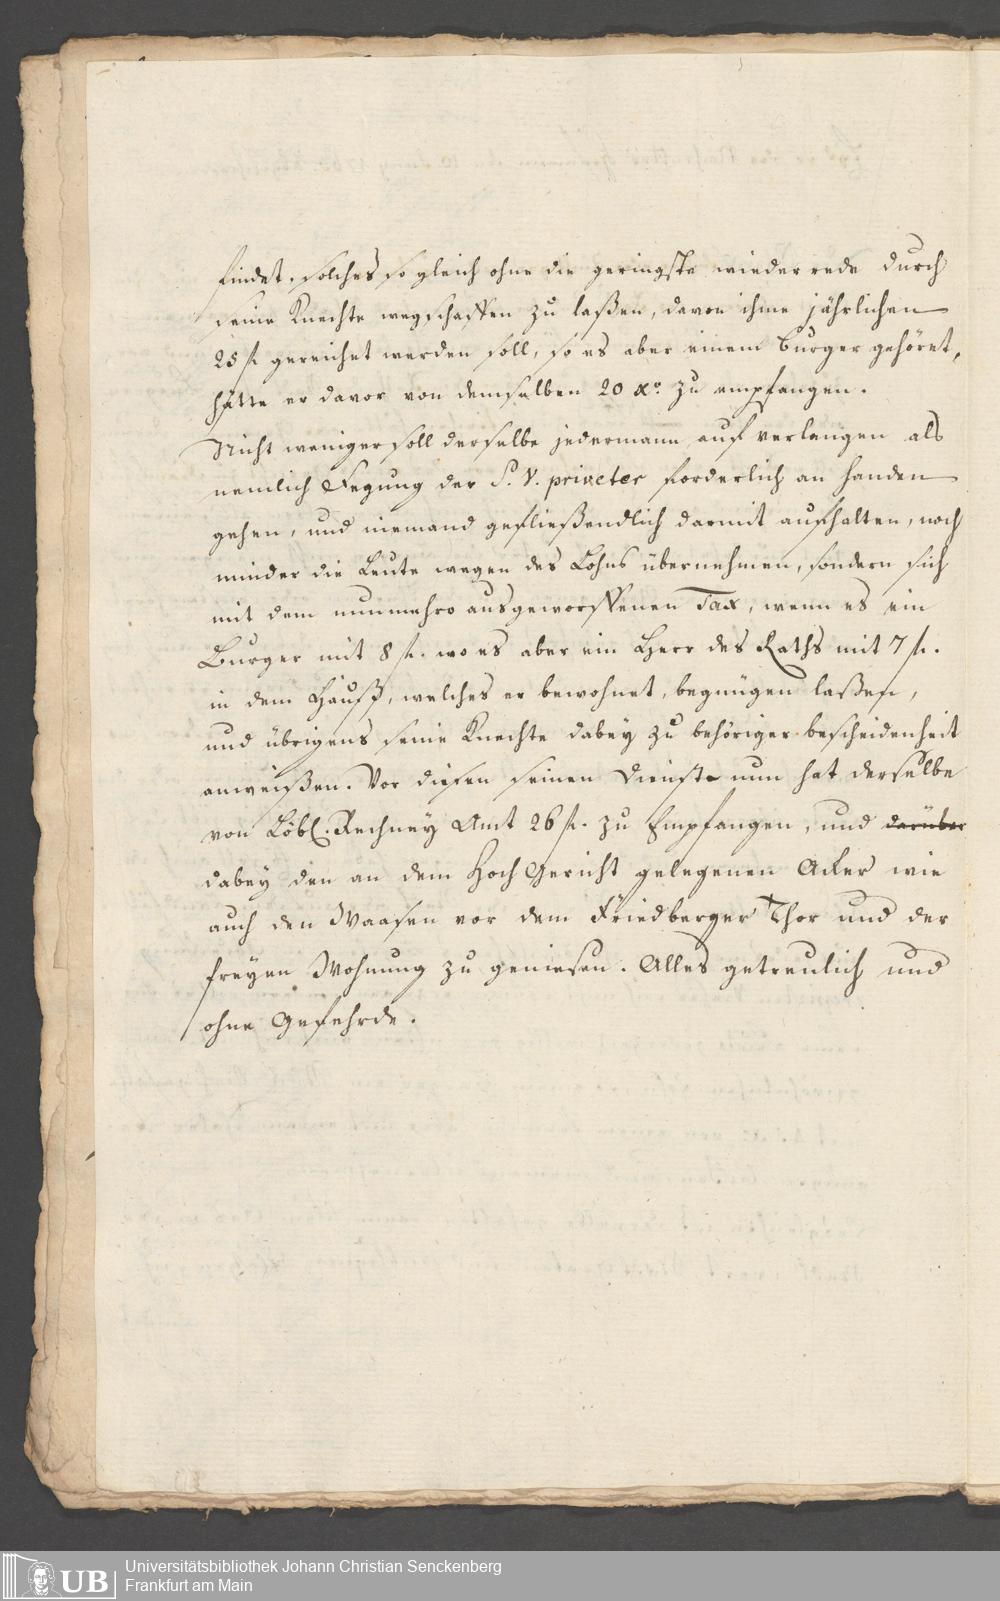 findet, solches so gleich ohne die geringste wiederrede durch
seine Knechte wegschaffen zu laßen, davon ihme jährlichen
25 fl. gereichet werden soll, so es aber einem Burger gehöret,
hätte er davor von demselben 20 xr. zu empfangen.
Nicht weniger soll derselbe jedermann auf verlangen als
nemlich Fegung der S. V. priveter forderlich an handen
gehen, und niemand gefließendlich darmit aufhalten, noch
minder die Leute wegen des Lohns übernehmen, sondern sich
mit dem nunmehro ausgeworffenen Tax, wenn es ein
Burger mit 8 fl. wo es aber ein Herr des Raths mit 7 fl.
in dem Hauß, welches er bewohnet, begnügen laßen,
und übrigens seine Knechte dabey zu behöriger bescheidenheit
anweißen. Vor diesen seinen Dienst nun hat derselbe
von Löbl. Rechney Amt 26 fl. zu Empfangen, und darüber
dabey den an dem Hoch Gericht gelegenen Acker wie
auch den Waasen vor dem Friedberger Thor und der
freyen Wohnung zu geniesen. Alles getreulich und
ohne Gefehrde.
UB
Universitätsbibliothek Johann Christian Senckenberg
Frankfurt am Main